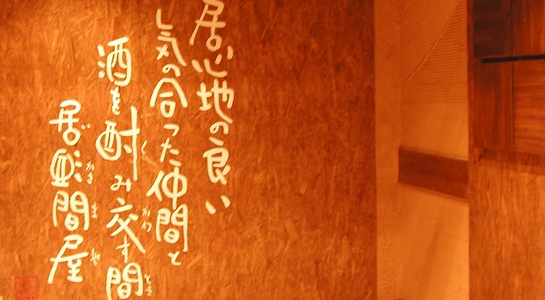 居心地の良い
気の合った仲間と
酒を酌み交す間
間屋